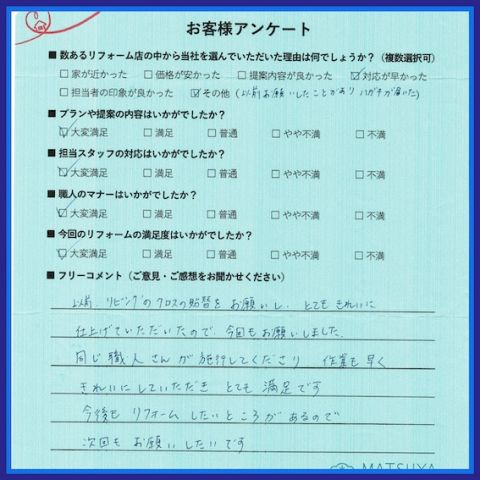 お客様アンケート
■ 数あるリフォーム店の中から当社を選んでいただいた理由は何でしょうか？（複数選択可）
□ 家が近かった □ 価格が安かった □ 提案内容が良かった ☑ 対応が早かった
□ 担当者の印象が良かった ☑ その他（以前お願いしたことがあり ハガキが届いた）
■ プランや提案の内容はいかがでしたか？
☑ 大変満足 □ 満足 □ 普通 □ やや不満 □ 不満
■ 担当スタッフの対応はいかがでしたか？
☑ 大変満足 □ 満足 □ 普通 □ やや不満 □ 不満
■ 職人のマナーはいかがでしたか？
☑ 大変満足 □ 満足 □ 普通 □ やや不満 □ 不満
■ 今回のリフォームの満足度はいかがでしたか？
☑ 大変満足 □ 満足 □ 普通 □ やや不満 □ 不満
■ フリーコメント（ご意見・ご感想をお聞かせください）
以前、リビングのクロスの貼替をお願いし、とてもきれいに
仕上げていただいたので、今回もお願いしました。
同じ職人さんが施行してくださり 作業も早く
きれいにしていただき とても満足です
今後も リフォームしたいところがあるので
次回も お願いしたいです
MATSUYA